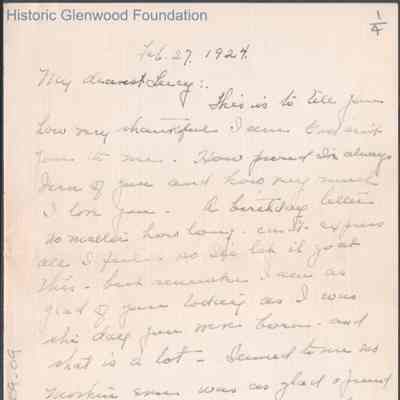 Historic Glenwood Foundation
1/4
Feb. 27, 1924.
My dearest Lucy:.
This is to tell you
how very thankful I am God sent
you to me. How proud I'm always
been of you and how very much
I love you. A birthday letter
no matter how long - can't express
all I feel - so I'll let it go at
this - but remember I am as
glad of you today as I was
the day you were born - and
that is a lot - Seemed to me no
Mother ever was as glad
09-09